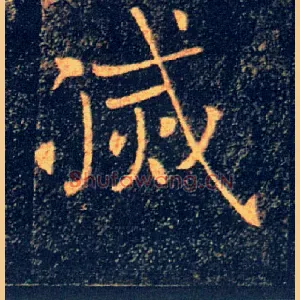 滅
Shufawang.cn